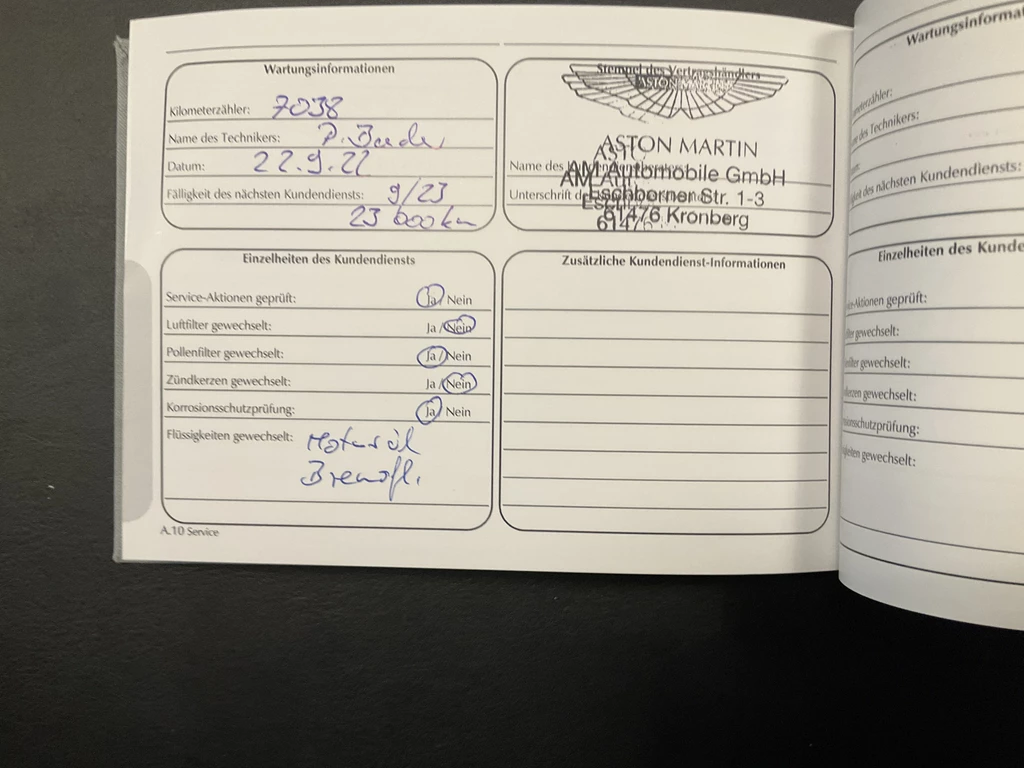 Wartungsinformationen
Kilometerzähler: 7038
Name des Technikers: P.
Datum: 22.9.22
Fälligkeit des nächsten Kundendiensts: 9/23
23 000 km
Stempel des Vertragshändlers
ASTON MARTIN
ASTON MARTIN
Name des
AM Automobile GmbH
Unterschrift
Eschborner Str. 1-3
61476 Kronberg
Einzelheiten des Kundendiensts
Service-Aktionen geprüft: Ja/Nein
Luftfilter gewechselt: Ja/Nein
Pollenfilter gewechselt: Ja/Nein
Zündkerzen gewechselt: Ja/Nein
Korrosionsschutzprüfung: Ja/Nein
Flüssigkeiten gewechselt: Motoröl
Bremsfl.
A.10 Service
Zusätzliche Kundendienst-Informationen
Wartungsinformat
meterzähler:
des Technikers:
des nächsten Kundendiensts:
Einzelheiten des Kunde
Aktionen geprüft:
gewechselt:
gewechselt:
gewechselt:
osionsschutzprüfung:
gewechselt: